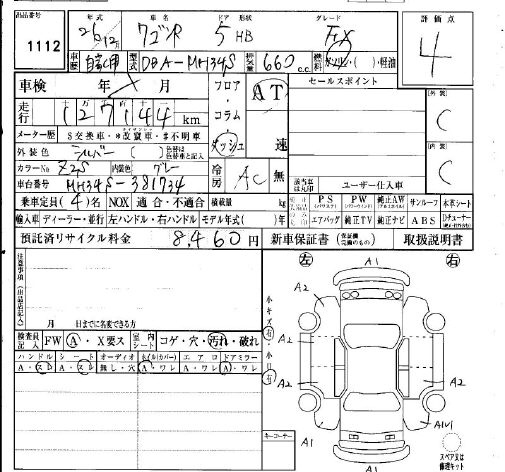 出品番号 年式 車名 ドア 形状 グレード 評価点
1112 26年12月 ワゴンR 5 HB FX 4
車歴 自家用 型式 DBA-MH34S 排気量 660 c.c. 燃料 ガソリン・( )・軽油
車検 年 月 フロア・コラム・ダッシュ AT 速 セールスポイント
走行 十 万 千 百 十 一 127144 km 外装 C
メーター歴 S交換車・*改竄車・#不明車
外装色 シルバー ( ) 色替は色替車と記入 内装 C
カラーNo Z2S 内装色 グレー 冷房 AC 無
車台番号 MH34S-381734 該当車は丸印 ユーザー仕入車
乗車定員 (4)名 NOX 適合・不適合 積載量 kg PS (パワステ) PW (パワーウインド) 純正AW (アルミホイル) サンルーフ 本革シート
輸入車 ディーラー・並行 左ハンドル・右ハンドル モデル年式( )年 エアバッグ 純正TV 純正ナビ ABS
預託済リサイクル料金 8,460円 新車保証書 取扱説明書
注意事項(出品店記入) 左 A1 右
A2 A2
小キズ 有 小凹 有
月 日までに名変できる方 A1
検査員記入 FW A・X要ス 室内シート コゲ・穴・汚れ・破れ
ハンドル シート オーディオ ホイル(カバー) エアロ ドアミラー
A・スレ A・スレ 無し・穴 A・ワレ A・ワレ A・ワレ A2 A2
A1 A1V1
キーコーナー A1 A1 スペア又は修理キット